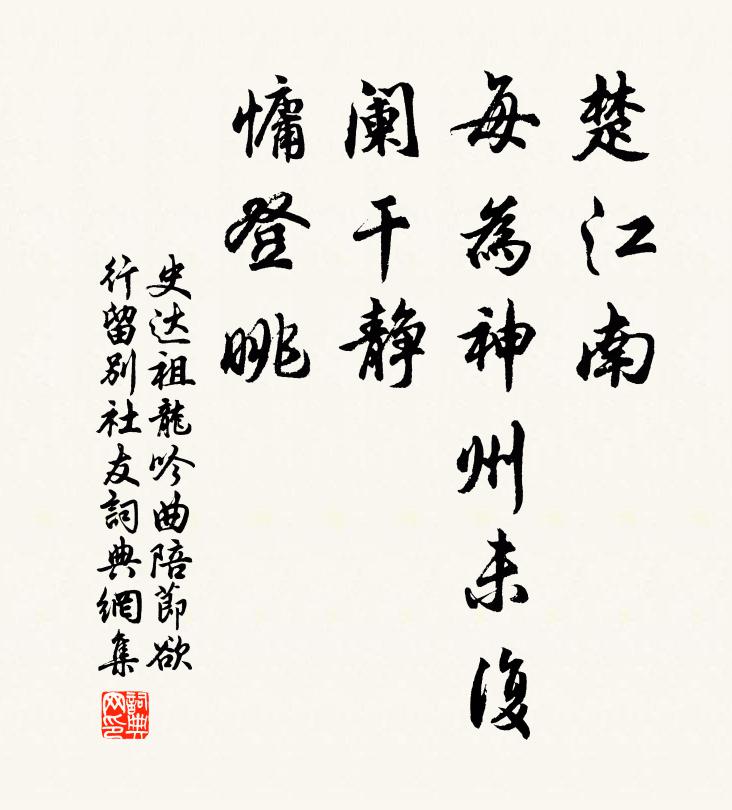 楚江南
每為神州未復
阑干静
慵登眺
史达祖龍吟曲陪節欲
行留別社友詞典網集
詞典网印